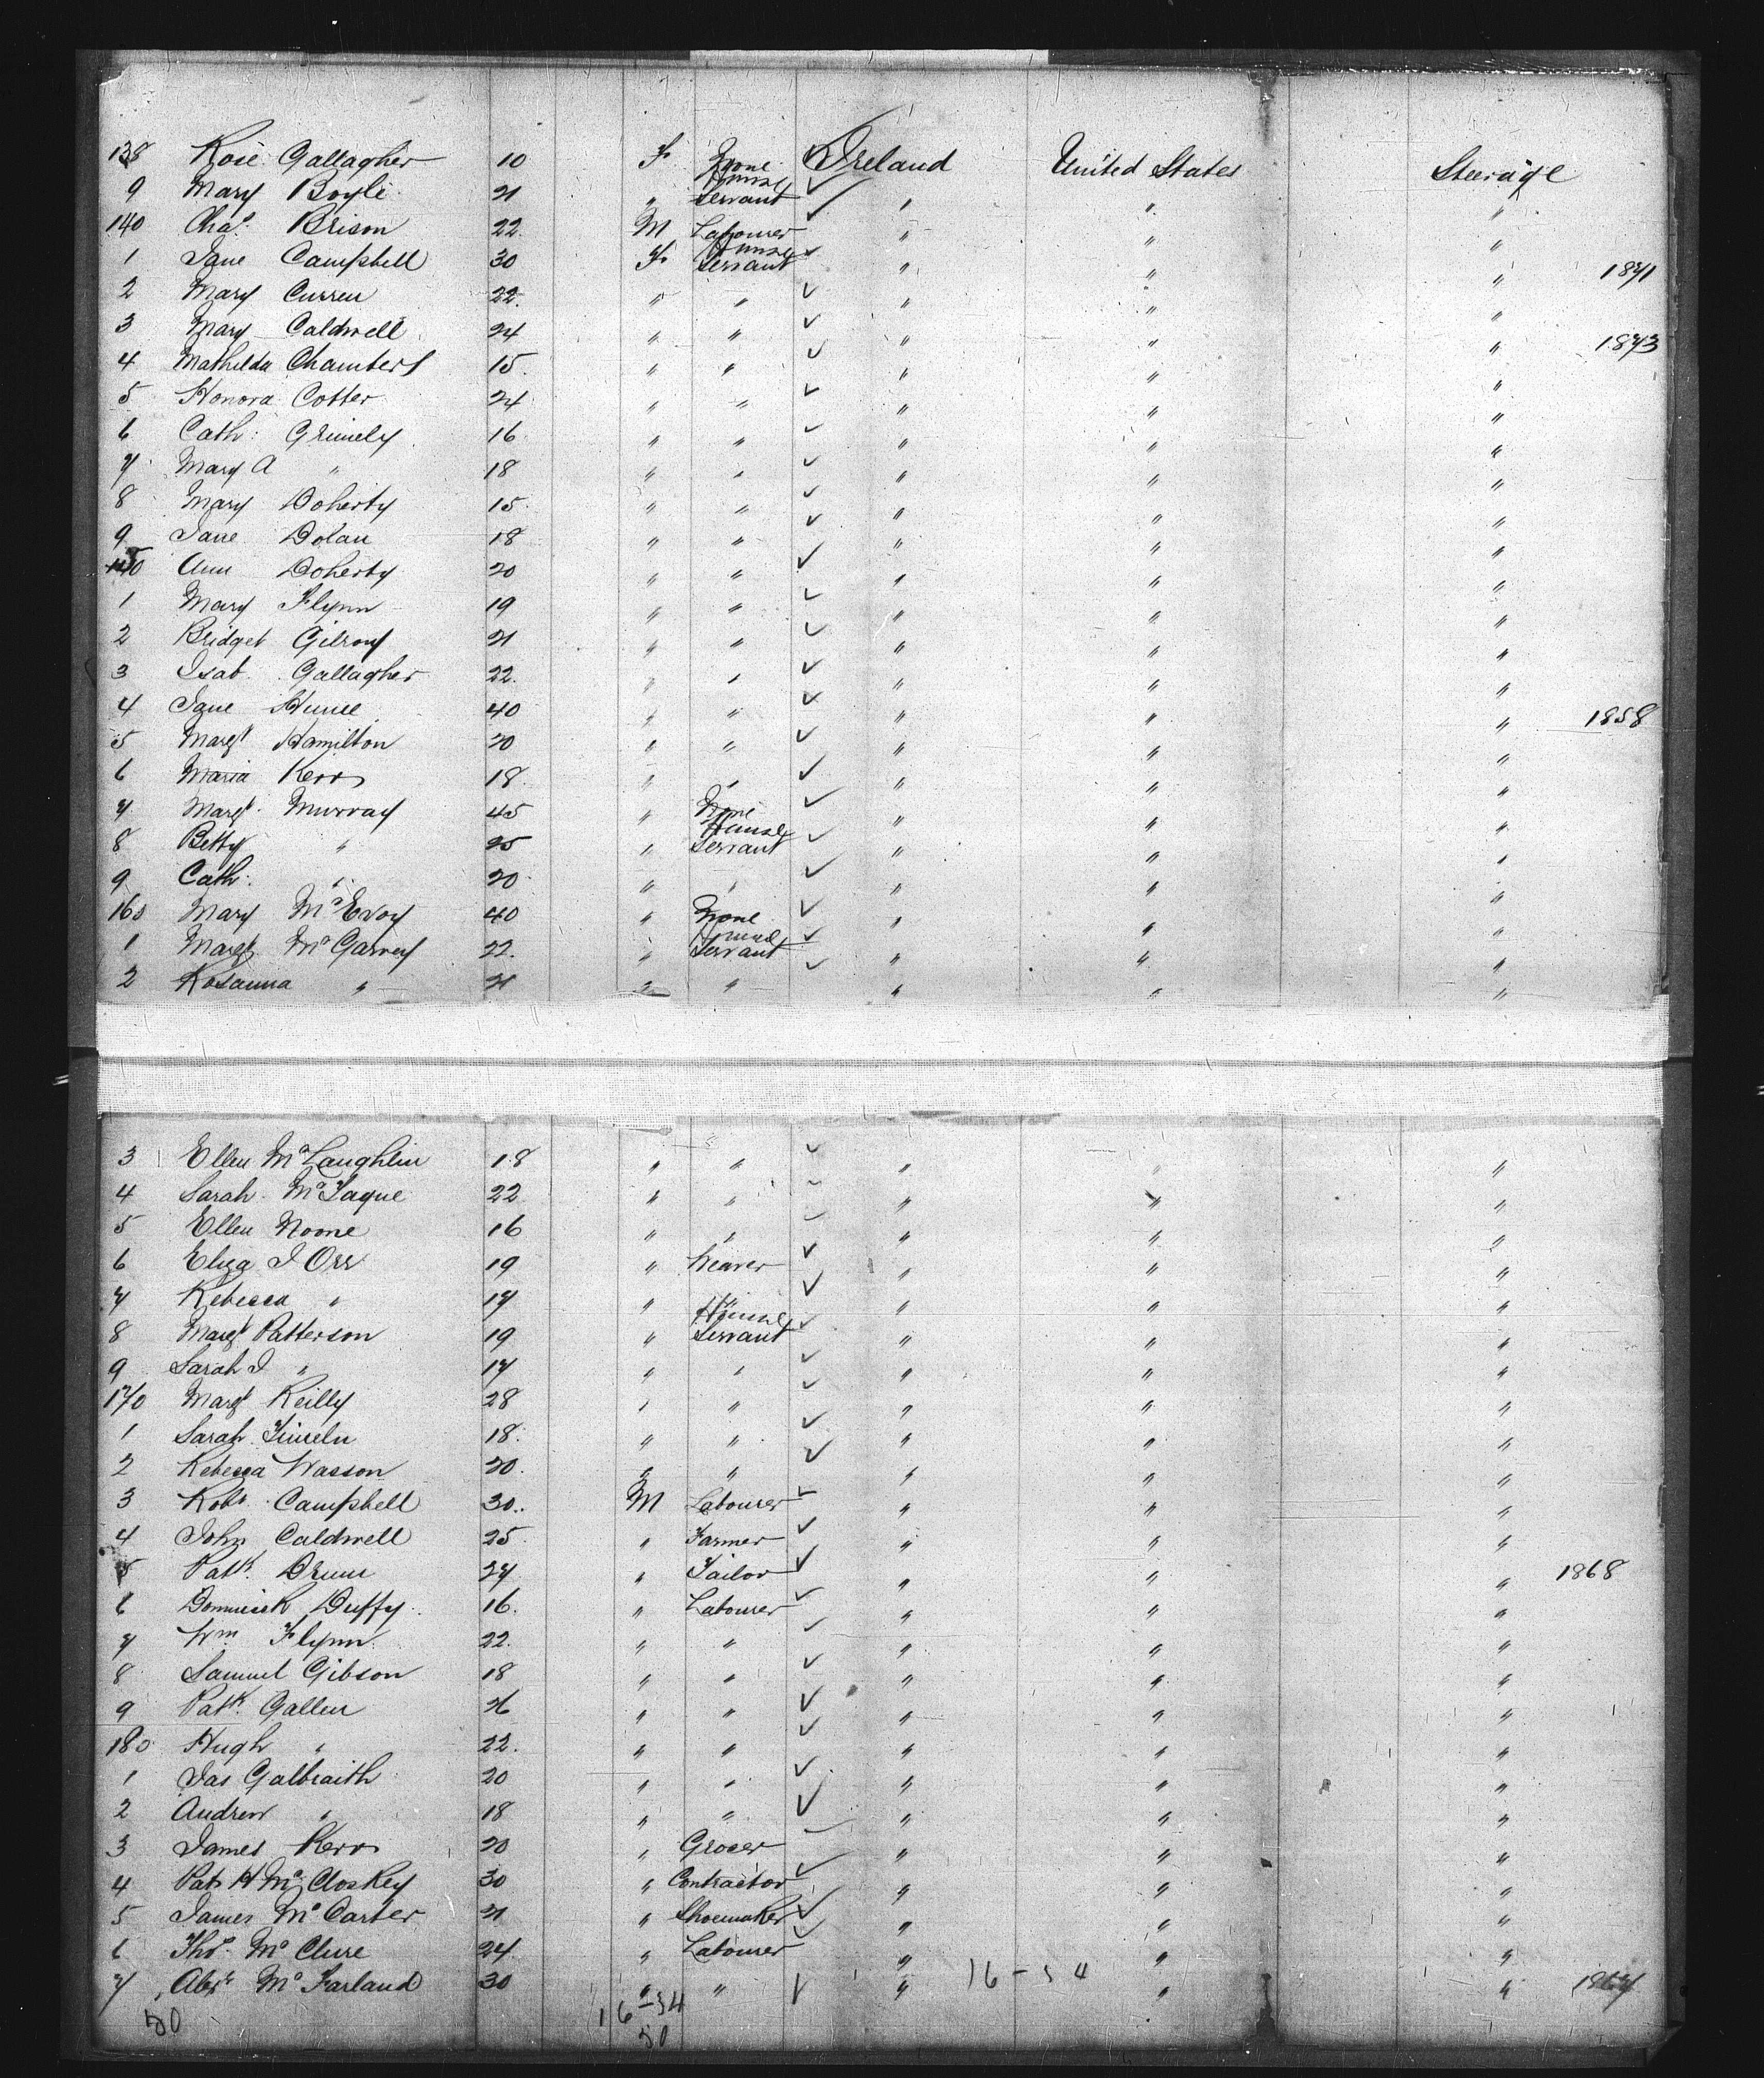 138 Rose Gallagher 10 F None Ireland United States Steerage
9 Mary Boyle 21 " House Servant " " "
140 Chas. Brison 22 M Labourer " " "
1 Jane Campbell 30 F House Servant " " " 1871
2 Mary Curren 22 " " " " "
3 Mary Caldwell 24 " " " " " 1873
4 Mathilda Chambers 15 " " " " "
5 Honora Cotter 24 " " " " "
6 Cath: Grimely 16 " " " " "
7 Mary A " 18 " " " " "
8 Mary Doherty 15 " " " " "
9 Jane Dolan 18 " " " " "
150 Ann Doherty 20 " " " " "
1 Mary Flynn 19 " " " " "
2 Bridget Gilroy 21 " " " " "
3 Isab. Gallagher 22 " " " " "
4 Jane 40 " " " " " 1858
5 Margt Hamilton 20 " " " " "
6 Maria Kerr 18 " " " " "
7 Margt. Murray 45 " None " " "
8 Betty " 25 " House Servant " " "
9 Cath: " 20 " " " " "
160 Mary McEvoy 40 " None " " "
1 Margt McGarvey 22 " House Servant " " "
2 Rosanna " 21 " " " " "
3 Ellen McLaughlin 18 " " " " "
4 Sarah McTague 22 " " " " "
5 Ellen Noone 16 " " " " "
6 Eliza J Orr 19 " Weaver " " "
7 Rebecca " 17 " " " " "
8 Margt Patterson 19 " House Servant " " "
9 Sarah J " 17 " " " " "
170 Margt Reilly 28 " " " " "
1 Sarah 18 " " " " "
2 Rebecca Wasson 20 " " " " "
3 Robt. Campbell 30 M Labourer " " "
4 John Caldwell 25 " Farmer " " "
5 Patk. Drum 27 " Tailor " " " 1868
6 Dominick Duffy 16 " Labourer " " "
7 Wm. Flynn 22 " " " " "
8 Samuel Gibson 18 " " " " "
9 Patk. Gallen 26 " " " " "
180 Hugh " 22 " " " " "
1 Jas Galbraith 20 " " " " "
2 Andrew " 18 " " " " "
3 James Kerr 20 " Grocer " " "
4 Pat H McCloskey 30 " Contractor " " "
5 James McCarter 21 " Shoemaker " " "
6 Thos. McClure 24 " Labourer " " "
7 Abr. McFarland 30 " " " 16-34 " " 1867
50 16-34
50